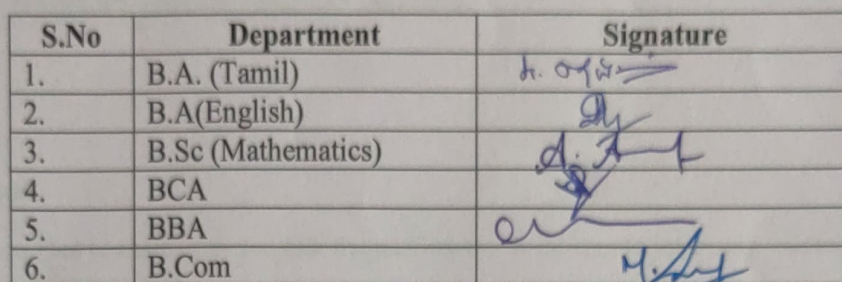 S.No Department Signature
1. B.A. (Tamil)
2. B.A(English)
3. B.Sc (Mathematics)
4. BCA
5. BBA
6. B.Com